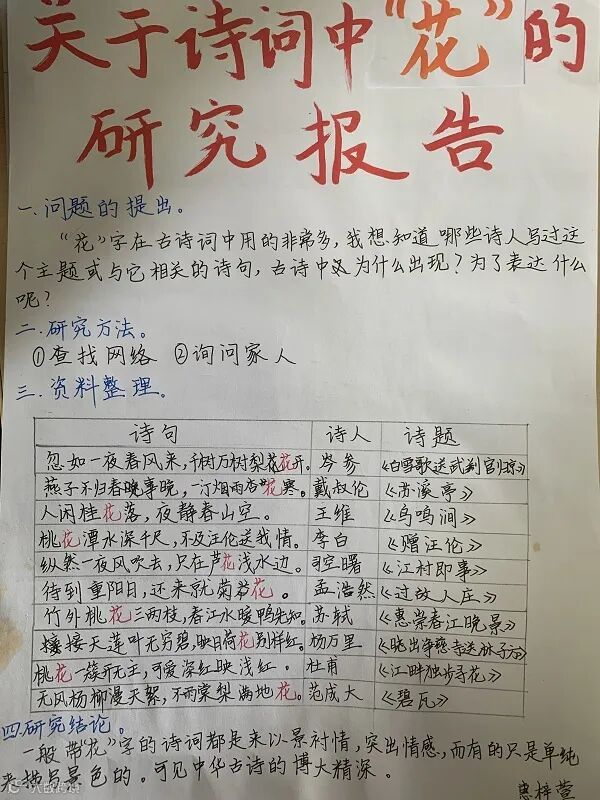 关于诗词中“花”的
研究报告
一.问题的提出。
“花”字在古诗词中用的非常多,我想知道哪些诗人写过这
个主题或与它相关的诗句,古诗中又为什么出现?为了表达什么
呢?
二.研究方法。
①查找网络 ②询问家人
三.资料整理。
诗句 诗人 诗题
忽如一夜春风来,千树万树梨花花开。 岑参 《白雪歌送武判官归京》
燕子不归春晚事晚,一汀烟雨杏花寒。 戴叔伦 《苏溪亭》
人闲桂花落,夜静春山空。 王维 《鸟鸣涧》
桃花潭水深千尺,不及汪伦送我情。 李白 《赠汪伦》
纵然一夜风吹去,只在芦花浅水边。 司空曙 《江村即事》
待到重阳日,还来就菊花。 孟浩然 《过故人庄》
竹外桃花三两枝,春江水暖鸭先知。 苏轼 《惠崇春江晚景》
接天莲叶无穷碧,映日荷花别样红。 杨万里 《晓出净慈寺送林子方》
桃花一簇开无主,可爱深红映浅红。 杜甫 《江畔独步寻花》
无风杨柳漫天絮,不雨棠梨满地花。 范成大 《碧瓦》
四.研究结论。
一般带“花”字的诗词都是来以景衬情,突出情感,而有的只是单纯
来描写景色的。可见中华古诗的博大精深。
惠梓萱